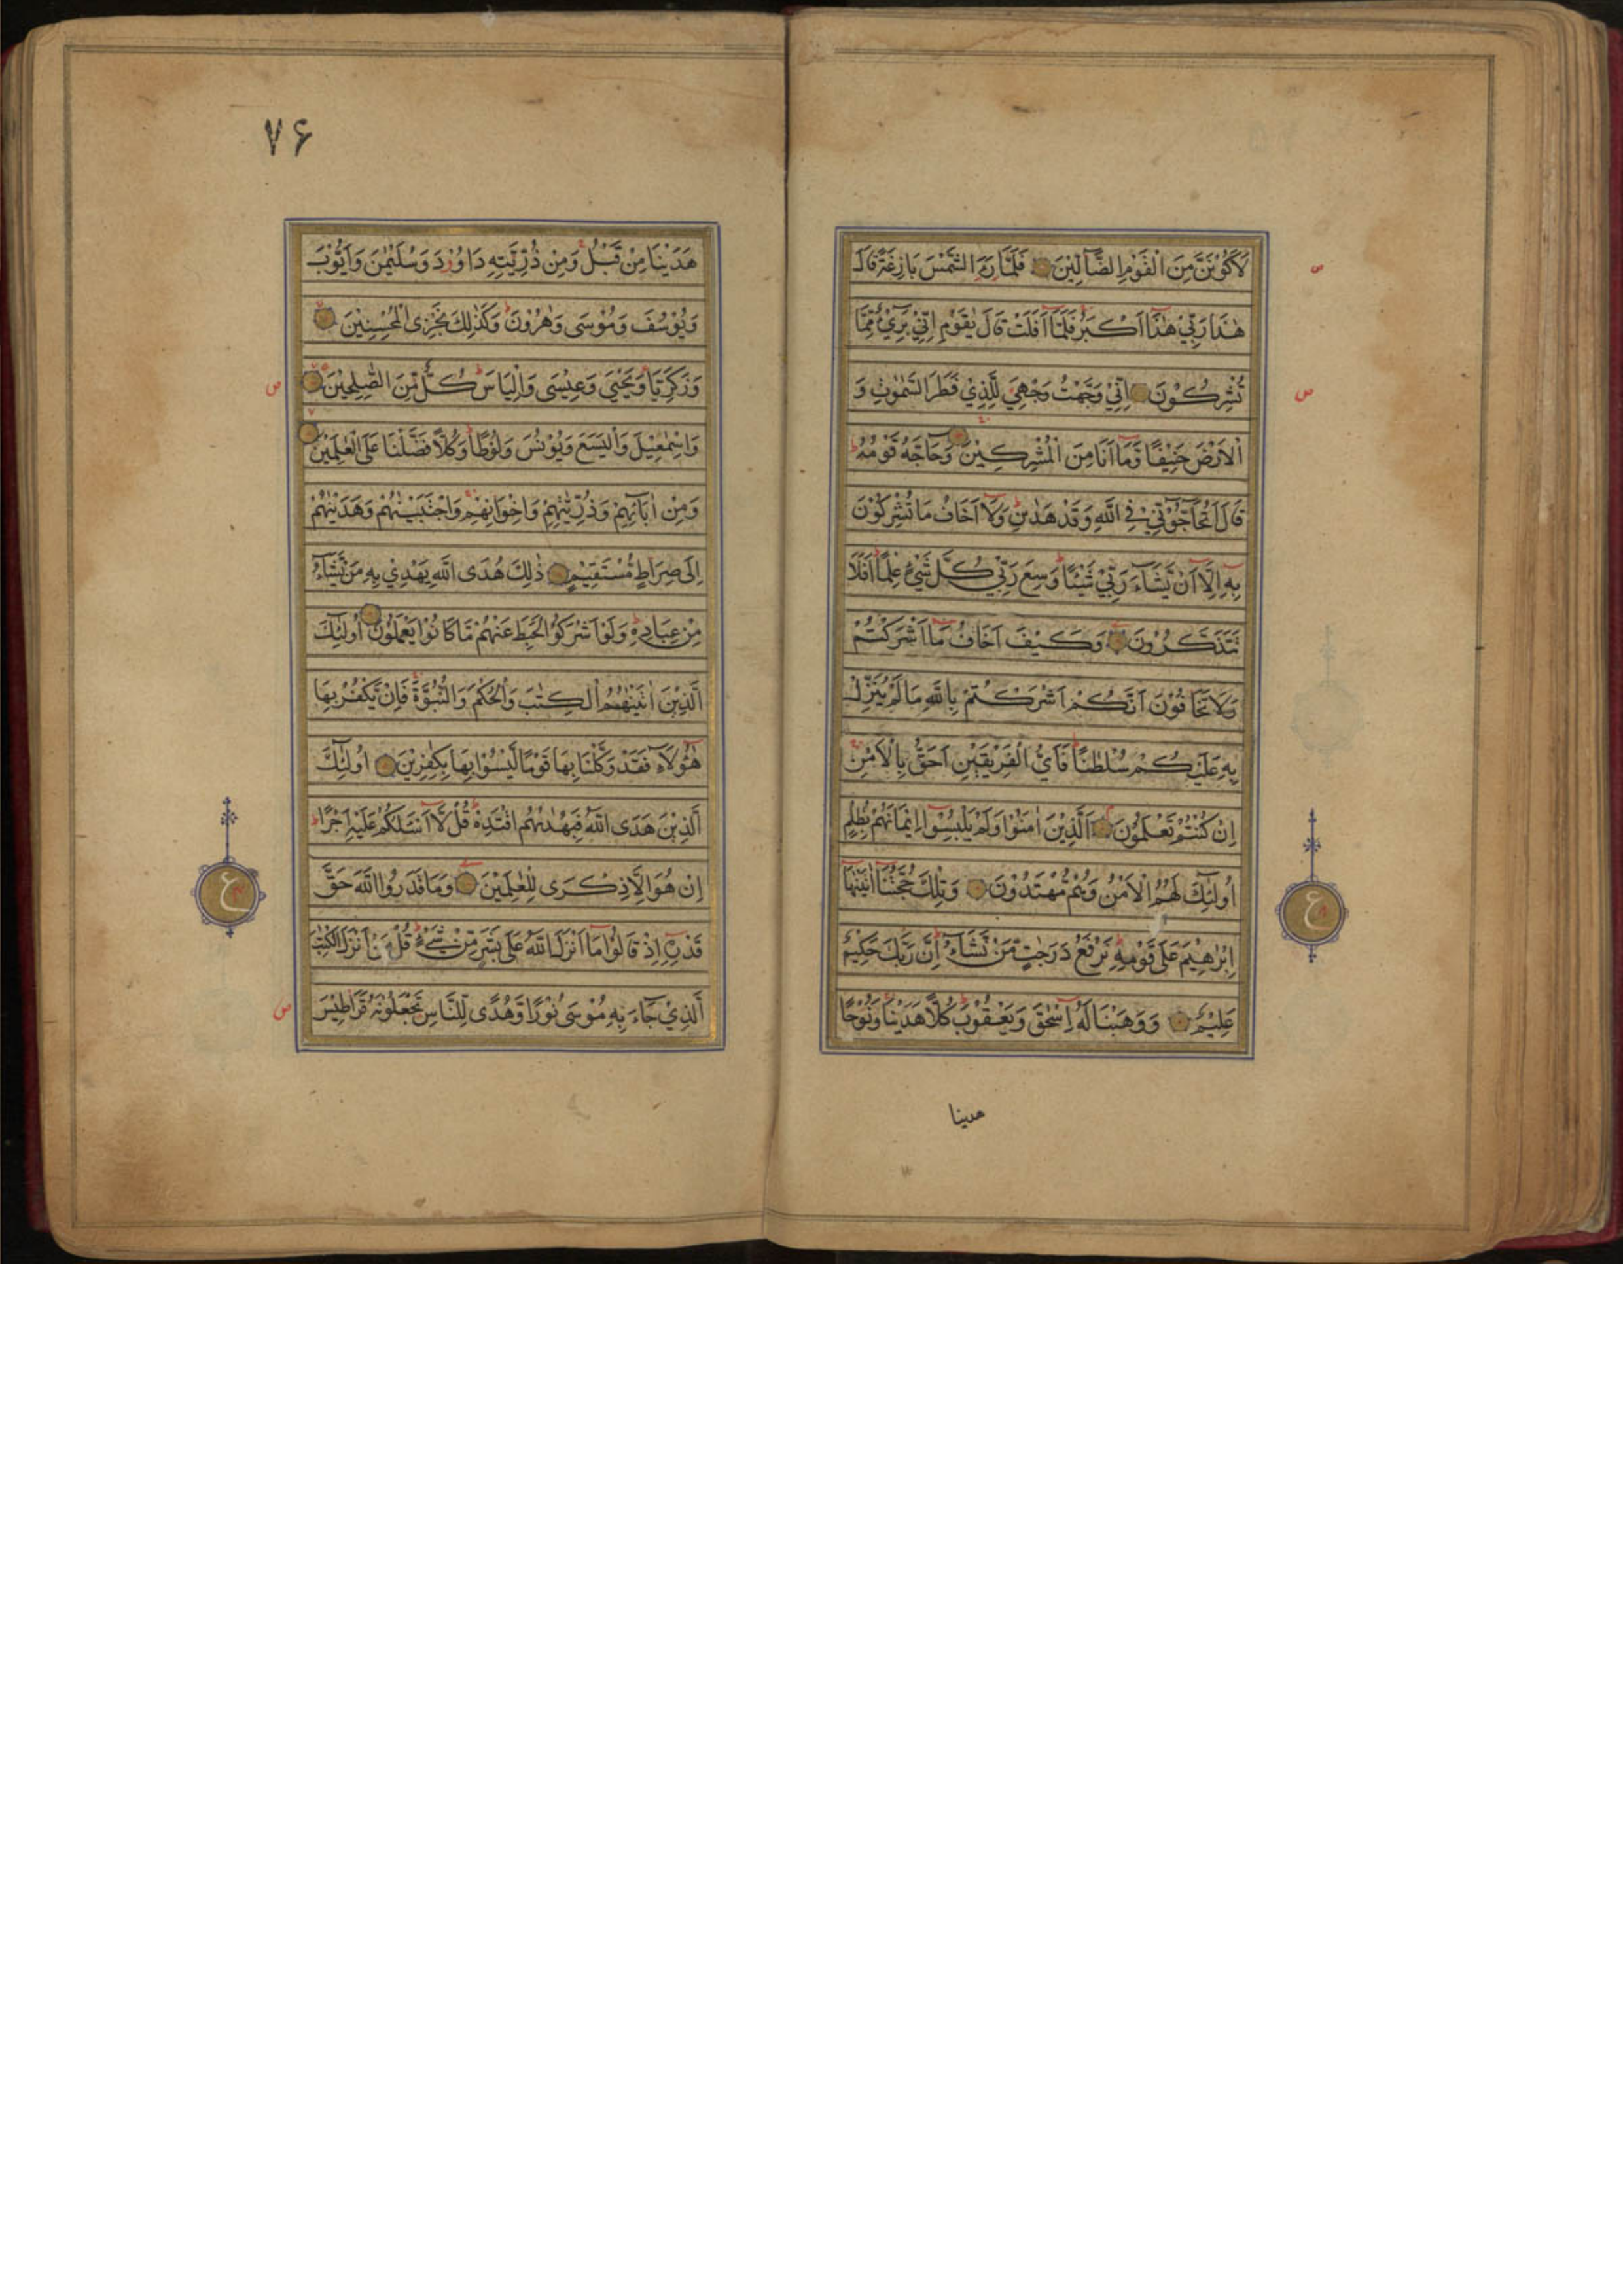 لَاَكُوْنَنَّ مِنَ الْقَوْمِ الضَّآلِّيْنَ فَلَمَّا رَءَا الشَّمْسَ بَازِغَةً قَالَ
هٰذَا رَبِّيْ هٰذَآ اَكْبَرُ فَلَمَّآ اَفَلَتْ قَالَ يٰقَوْمِ اِنِّيْ بَرِيْءٌ مِّمَّا
تُشْرِكُوْنَ اِنِّيْ وَجَّهْتُ وَجْهِيَ لِلَّذِيْ فَطَرَ السَّمٰوٰتِ وَ
الْاَرْضَ حَنِيْفًا وَّمَآ اَنَا مِنَ الْمُشْرِكِيْنَ وَحَآجَّهُ قَوْمُهُ
قَالَ اَتُحَآجُّوْنِّيْ فِي اللّٰهِ وَقَدْ هَدٰىنِ وَلَآ اَخَافُ مَا تُشْرِكُوْنَ
بِهٖ اِلَّآ اَنْ يَّشَآءَ رَبِّيْ شَيْئًا وَسِعَ رَبِّيْ كُلَّ شَيْءٍ عِلْمًا اَفَلَا
تَتَذَكَّرُوْنَ وَكَيْفَ اَخَافُ مَآ اَشْرَكْتُمْ
وَلَا تَخَافُوْنَ اَنَّكُمْ اَشْرَكْتُمْ بِاللّٰهِ مَا لَمْ يُنَزِّلْ
بِهٖ عَلَيْكُمْ سُلْطٰنًا فَاَيُّ الْفَرِيْقَيْنِ اَحَقُّ بِالْاَمْنِ
اِنْ كُنْتُمْ تَعْلَمُوْنَ اَلَّذِيْنَ اٰمَنُوْا وَلَمْ يَلْبِسُوْٓا اِيْمَانَهُمْ بِظُلْمٍ
اُولٰٓئِكَ لَهُمُ الْاَمْنُ وَهُمْ مُّهْتَدُوْنَ وَتِلْكَ حُجَّتُنَآ اٰتَيْنٰهَآ
اِبْرٰهِيْمَ عَلٰى قَوْمِهٖ نَرْفَعُ دَرَجٰتٍ مَّنْ نَّشَآءُ اِنَّ رَبَّكَ حَكِيْمٌ
عَلِيْمٌ وَوَهَبْنَا لَهٗٓ اِسْحٰقَ وَيَعْقُوْبَ كُلًّا هَدَيْنَا وَنُوْحًا
هدينا
۷۶
هَدَيْنَا مِنْ قَبْلُ وَمِنْ ذُرِّيَّتِهٖ دَاوٗدَ وَسُلَيْمٰنَ وَاَيُّوْبَ
وَيُوْسُفَ وَمُوْسٰى وَهٰرُوْنَ وَكَذٰلِكَ نَجْزِى الْمُحْسِنِيْنَ
وَزَكَرِيَّا وَيَحْيٰى وَعِيْسٰى وَاِلْيَاسَ كُلٌّ مِّنَ الصّٰلِحِيْنَ
وَاِسْمٰعِيْلَ وَالْيَسَعَ وَيُوْنُسَ وَلُوْطًا وَكُلًّا فَضَّلْنَا عَلَى الْعٰلَمِيْنَ
وَمِنْ اٰبَآئِهِمْ وَذُرِّيّٰتِهِمْ وَاِخْوَانِهِمْ وَاجْتَبَيْنٰهُمْ وَهَدَيْنٰهُمْ
اِلٰى صِرَاطٍ مُّسْتَقِيْمٍ ذٰلِكَ هُدَى اللّٰهِ يَهْدِيْ بِهٖ مَنْ يَّشَآءُ
مِنْ عِبَادِهٖ وَلَوْ اَشْرَكُوْا لَحَبِطَ عَنْهُمْ مَّا كَانُوْا يَعْمَلُوْنَ اُولٰٓئِكَ
الَّذِيْنَ اٰتَيْنٰهُمُ الْكِتٰبَ وَالْحُكْمَ وَالنُّبُوَّةَ فَاِنْ يَّكْفُرْ بِهَا
هٰٓؤُلَآءِ فَقَدْ وَكَّلْنَا بِهَا قَوْمًا لَّيْسُوْا بِهَا بِكٰفِرِيْنَ اُولٰٓئِكَ
الَّذِيْنَ هَدَى اللّٰهُ فَبِهُدٰىهُمُ اقْتَدِهْ قُلْ لَّآ اَسْئَلُكُمْ عَلَيْهِ اَجْرًا
اِنْ هُوَ اِلَّا ذِكْرٰى لِلْعٰلَمِيْنَ وَمَا قَدَرُوا اللّٰهَ حَقَّ
قَدْرِهٖٓ اِذْ قَالُوْا مَآ اَنْزَلَ اللّٰهُ عَلٰى بَشَرٍ مِّنْ شَيْءٍ قُلْ مَنْ اَنْزَلَ الْكِتٰبَ
الَّذِيْ جَآءَ بِهٖ مُوْسٰى نُوْرًا وَّهُدًى لِّلنَّاسِ تَجْعَلُوْنَهٗ قَرَاطِيْسَ